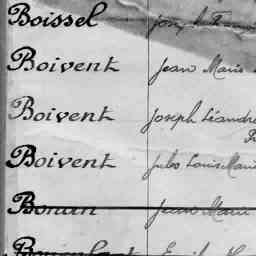 Boissel
Boivent Jean Marie
Boivent Joseph Léandre
Boivent Jules Louis Marie
Bonan Jean Marie